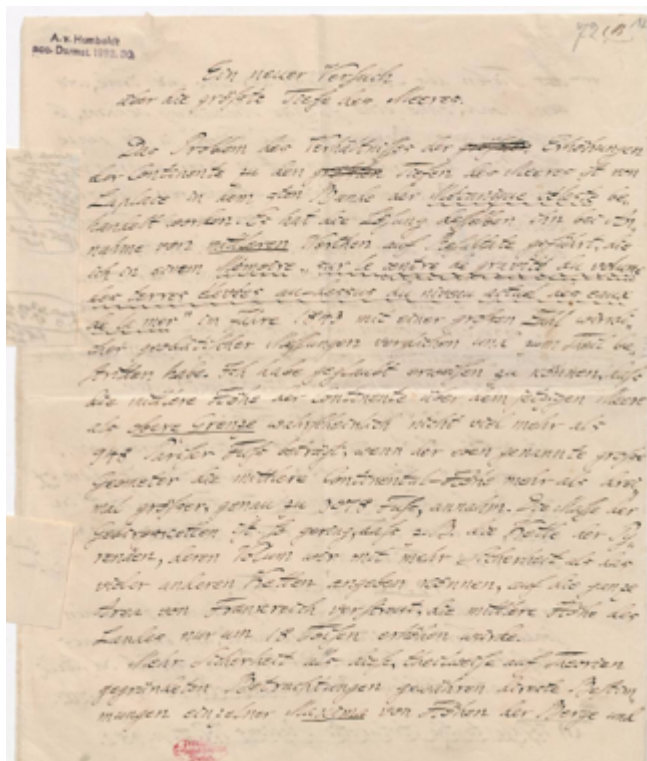 A. v. Humboldt
acc. Darmst. 1932.
Ein neuer Versuch
über die größte Tiefe des Meeres.
Das Problem des Verhältnisses der Erhöhungen
der Continente zu den Tiefen des Meeres ist von
Laplace in dem 5ten Bande der Mécanique céleste be-
handelt worden. Es hat die Lösung desselben ihn bei
nahme von mittleren Werthen auf Resultate geführt, die
ich in einem Mémoire „sur le centre de gravité du volume
des terres élevées au-dessus du niveau actuel des eaux
de la mer" im Jahre 1843 mit einer großen Zahl wirkli-
cher Messungen verglichen und zum Theil be-
stritten habe. Ich habe geglaubt erweisen zu können, daß
die mittlere Höhe der Continente über dem jetzigen Meere
als obere Grenze wahrscheinlich nicht viel mehr als
948 Pariser Fuß beträgt, wenn der eben genannte große
Geometer die mittlere Continental-Höhe mehr als drei
mal größer, genau zu 3078 Fuß, annahm. Die Masse der
Gebirgsketten ist so gering, daß z. B. die Kette der Py-
renäen, deren Volum wir mit mehr Sicherheit als das
vieler anderen Ketten angeben können, auf die ganze
Area von Frankreich verstreut, die mittlere Höhe des
Landes nur um 18 Toisen erhöhen würde.
Mehr Sicherheit als diese, theilweise auf Theorien
gegründeten Betrachtungen gewähren directe Bestim-
mungen einzelner Maxima von Höhen der Berge und